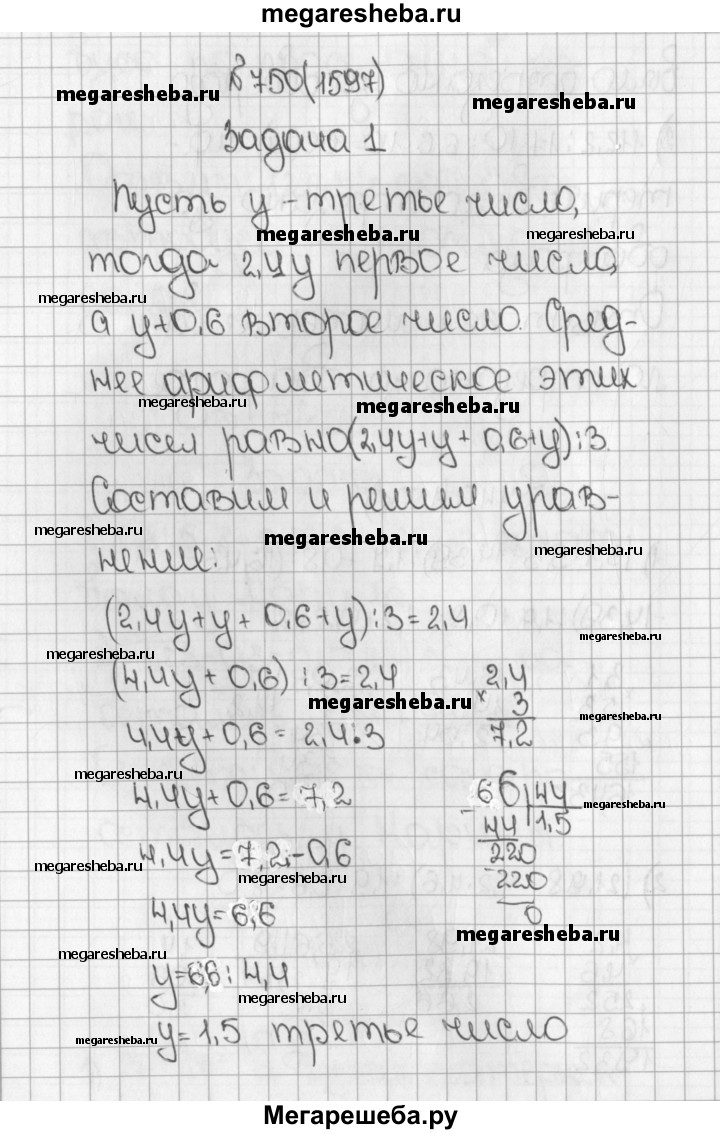 megaresheba.ru
№750(1597)
megaresheba.ru
megaresheba.ru
Задача 1
Пусть y - третье число,
megaresheba.ru
megaresheba.ru
тогда 2,4y первое число,
megaresheba.ru
а y+0,6 второе число. Сред-
нее арифметическое этих
megaresheba.ru
megaresheba.ru
чисел равно(2,4y+y+0,6+y):3.
Составим и решим урав-
megaresheba.ru
megaresheba.ru
megaresheba.ru
нение:
(2,4y+y+0,6+y):3=2,4
megaresheba.ru
megaresheba.ru
(4,4y+0,6):3=2,4
2,4
megaresheba.ru
× 3
megaresheba.ru
4,4y+0,6=2,4·3
7,2
megaresheba.ru
4,4y+0,6=7,2
66|44
megaresheba.ru
-44|1,5
4,4y=7,2-0,6
220
megaresheba.ru
megaresheba.ru
-220
0
4,4y=6,6
megaresheba.ru
megaresheba.ru
y=6,6:4,4
megaresheba.ru
y=1,5 третье число
megaresheba.ru
Мегарешеба.ру